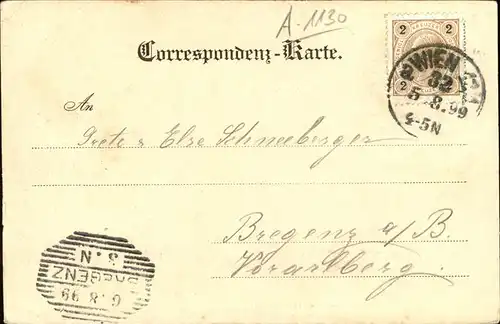 A. 1130
Correspondenz-Karte.
2 2
WIEN
2
32
5.8.99
4-5N
An
Grete & Else Schneeberger
Bregenz a/B.
Vorarlberg.
8.N
BREGENZ
6.8.99